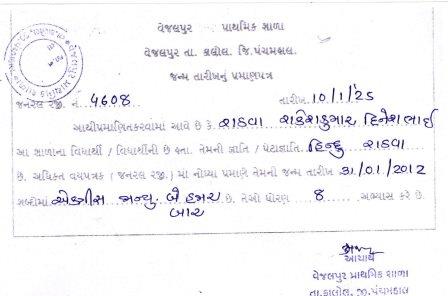 વેજલપુર પ્રાથમિક શાળા
વેજલપુર તા. કાલોલ. જિ.પંચમહાલ.
જન્મ તારીખનું પ્રમાણપત્ર
જનરલ રજી. નં. 4608 તારીખ. 10/1/25
આથીપ્રમાણિતકરવામાં આવે છે કે. રાઠવા રાકેશકુમાર દિનેશભાઈ
આ શાળાના વિદ્યાર્થી / વિદ્યાર્થીની છે હતા. તેમની જ્ઞાતિ / પેટાજ્ઞાતિ. હિન્દુ રાઠવા
છે. અધિકૃત વયપત્રક / જનરલ રજી.) માં નોંધ્યા પ્રમાણે તેમની જન્મ તારીખ 31/01/2012
શબ્દોમાં એકત્રીસ જાન્યુ. બે હજાર બાર છે. તેઓ ધોરણ 8 અભ્યાસ કરે છે.
આચાર્ય
વેજલપુર પ્રાથમિક શાળા
તા.કાલોલ, જી.પંચમહાલ